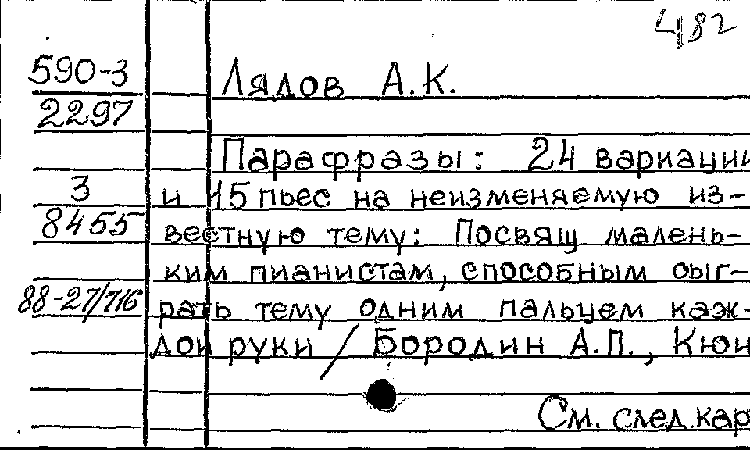 482
590-3 Лядов А.К.
2297
Парафразы: 24 вариации
3 и 15 пьес на неизменяемую из-
8455 вестную тему: Посвящ мален-
ким пианистам, способным сыг-
88-27/716 рать тему одним пальцем каж-
дой руки / Бородин А.П., Кюи
См. след.кар